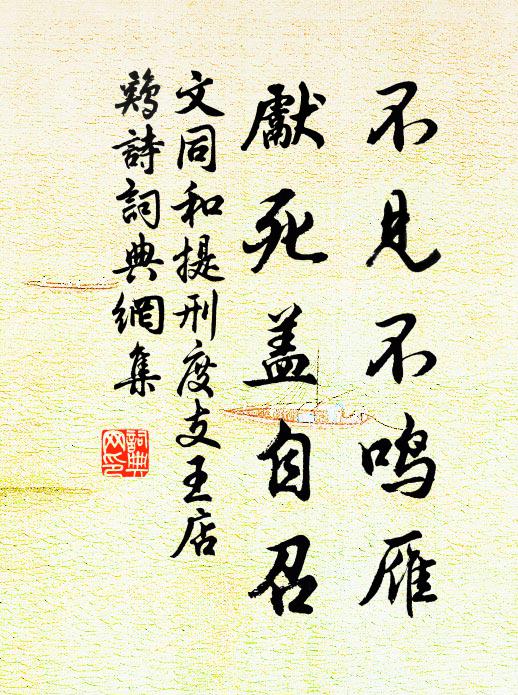 不見不鳴雁
獻死盖自召
文同和提刑度支王店
鷄詩詞典網集
詞典網印